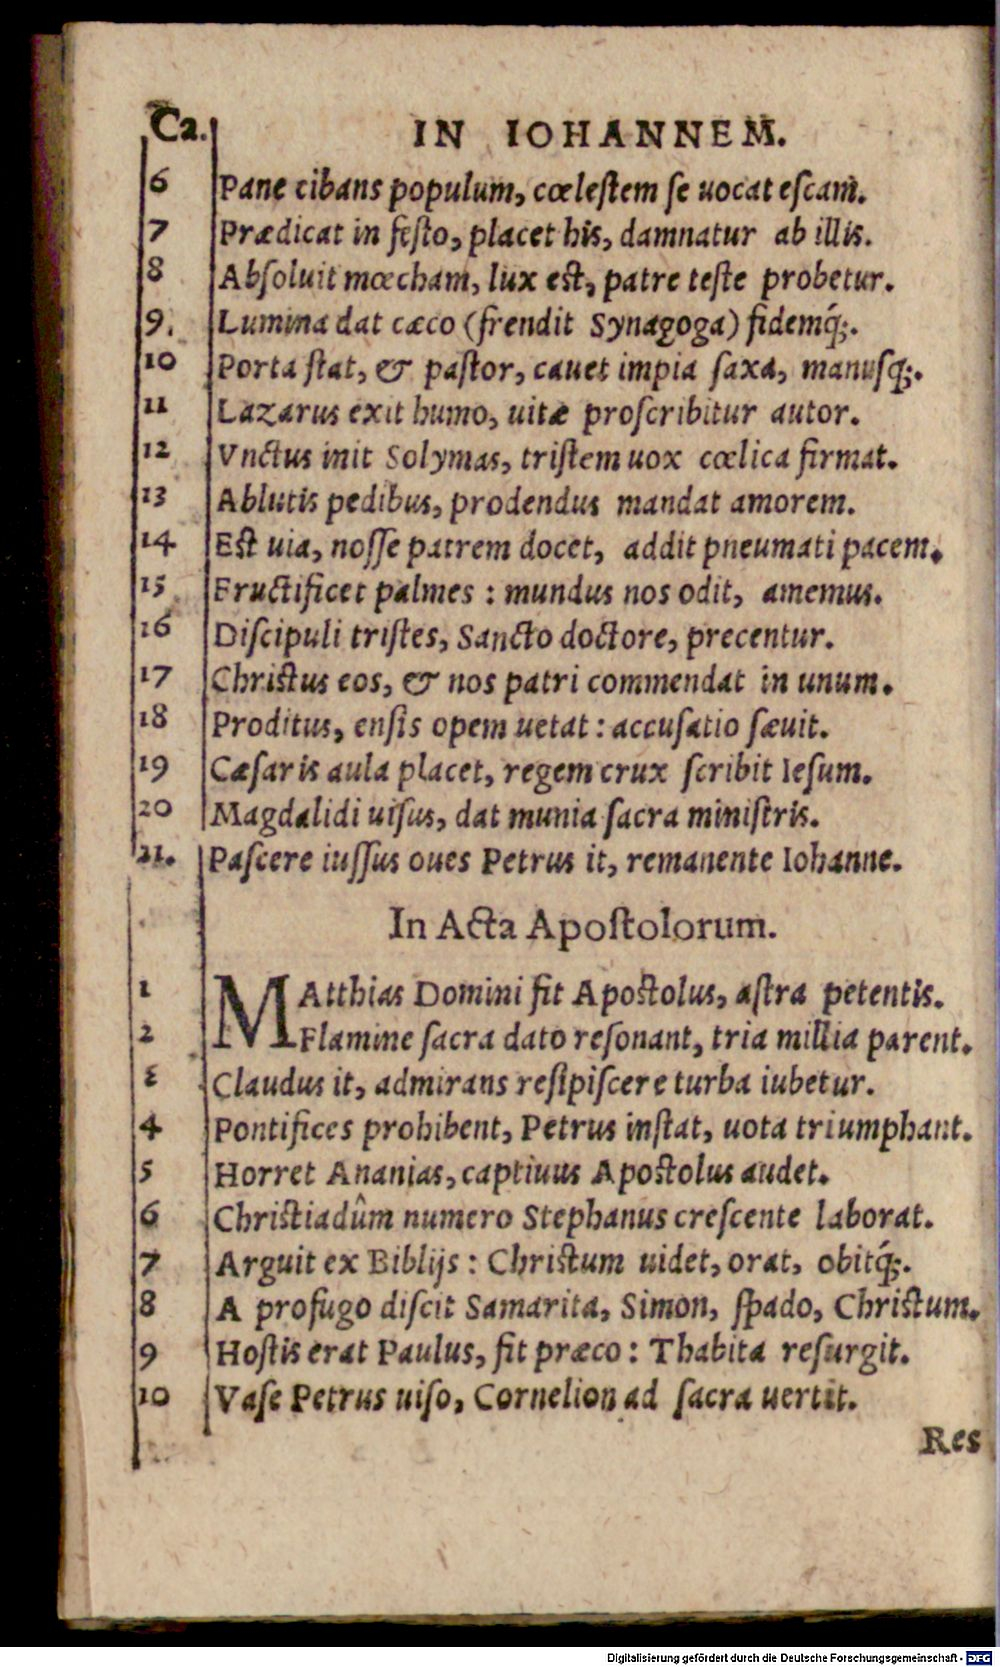 Ca. IN IOHANNEM.
6 Pane cibans populum, cœleſtem ſe uocat eſcam.
7 Prædicat in feſto, placet his, damnatur ab illis.
8 Abſoluit mœcham, lux est, patre teſte probetur.
9. Lumina dat cæco (frendit Synagoga) fidemq́;.
10 Porta ſtat, & paſtor, cauet impia ſaxa, manuſq́;.
11 Lazarus exit humo, uitæ proſcribitur autor.
12 Vnctus init Solymas, triſtem uox cœlica firmat.
13 Ablutis pedibus, prodendus mandat amorem.
14 Est uia, noſſe patrem docet, addit pneumati pacem.
15 Fructificet palmes : mundus nos odit, amemus.
16 Diſcipuli triſtes, Sancto doctore, precentur.
17 Christus eos, & nos patri commendat in unum.
18 Proditus, enſis opem uetat : accuſatio ſæuit.
19 Cæſaris aula placet, regem crux ſcribit Ieſum.
20 Magdalidi uiſus, dat munia ſacra miniſtris.
21. Paſcere iuſſus oues Petrus it, remanente Iohanne.
In Acta Apoſtolorum.
1 MAtthias Domini fit Apostolus, aſtra petentis.
2 Flamine ſacra dato reſonant, tria millia parent.
3 Claudus it, admirans reſipiſcere turba iubetur.
4 Pontifices prohibent, Petrus inſtat, uota triumphant.
5 Horret Ananias, captiuus Apostolus audet.
6 Christiadûm numero Stephanus creſcente laborat.
7 Arguit ex Biblijs : Christum uidet, orat, obitq́;.
8 A profugo diſcit Samarita, Simon, ſpado, Christum.
9 Hoſtis erat Paulus, fit præco : Thabita reſurgit.
10 Vaſe Petrus uiſo, Cornelion ad ſacra uertit.
Res
Digitalisierung gefördert durch die Deutsche Forschungsgemeinschaft - DFG